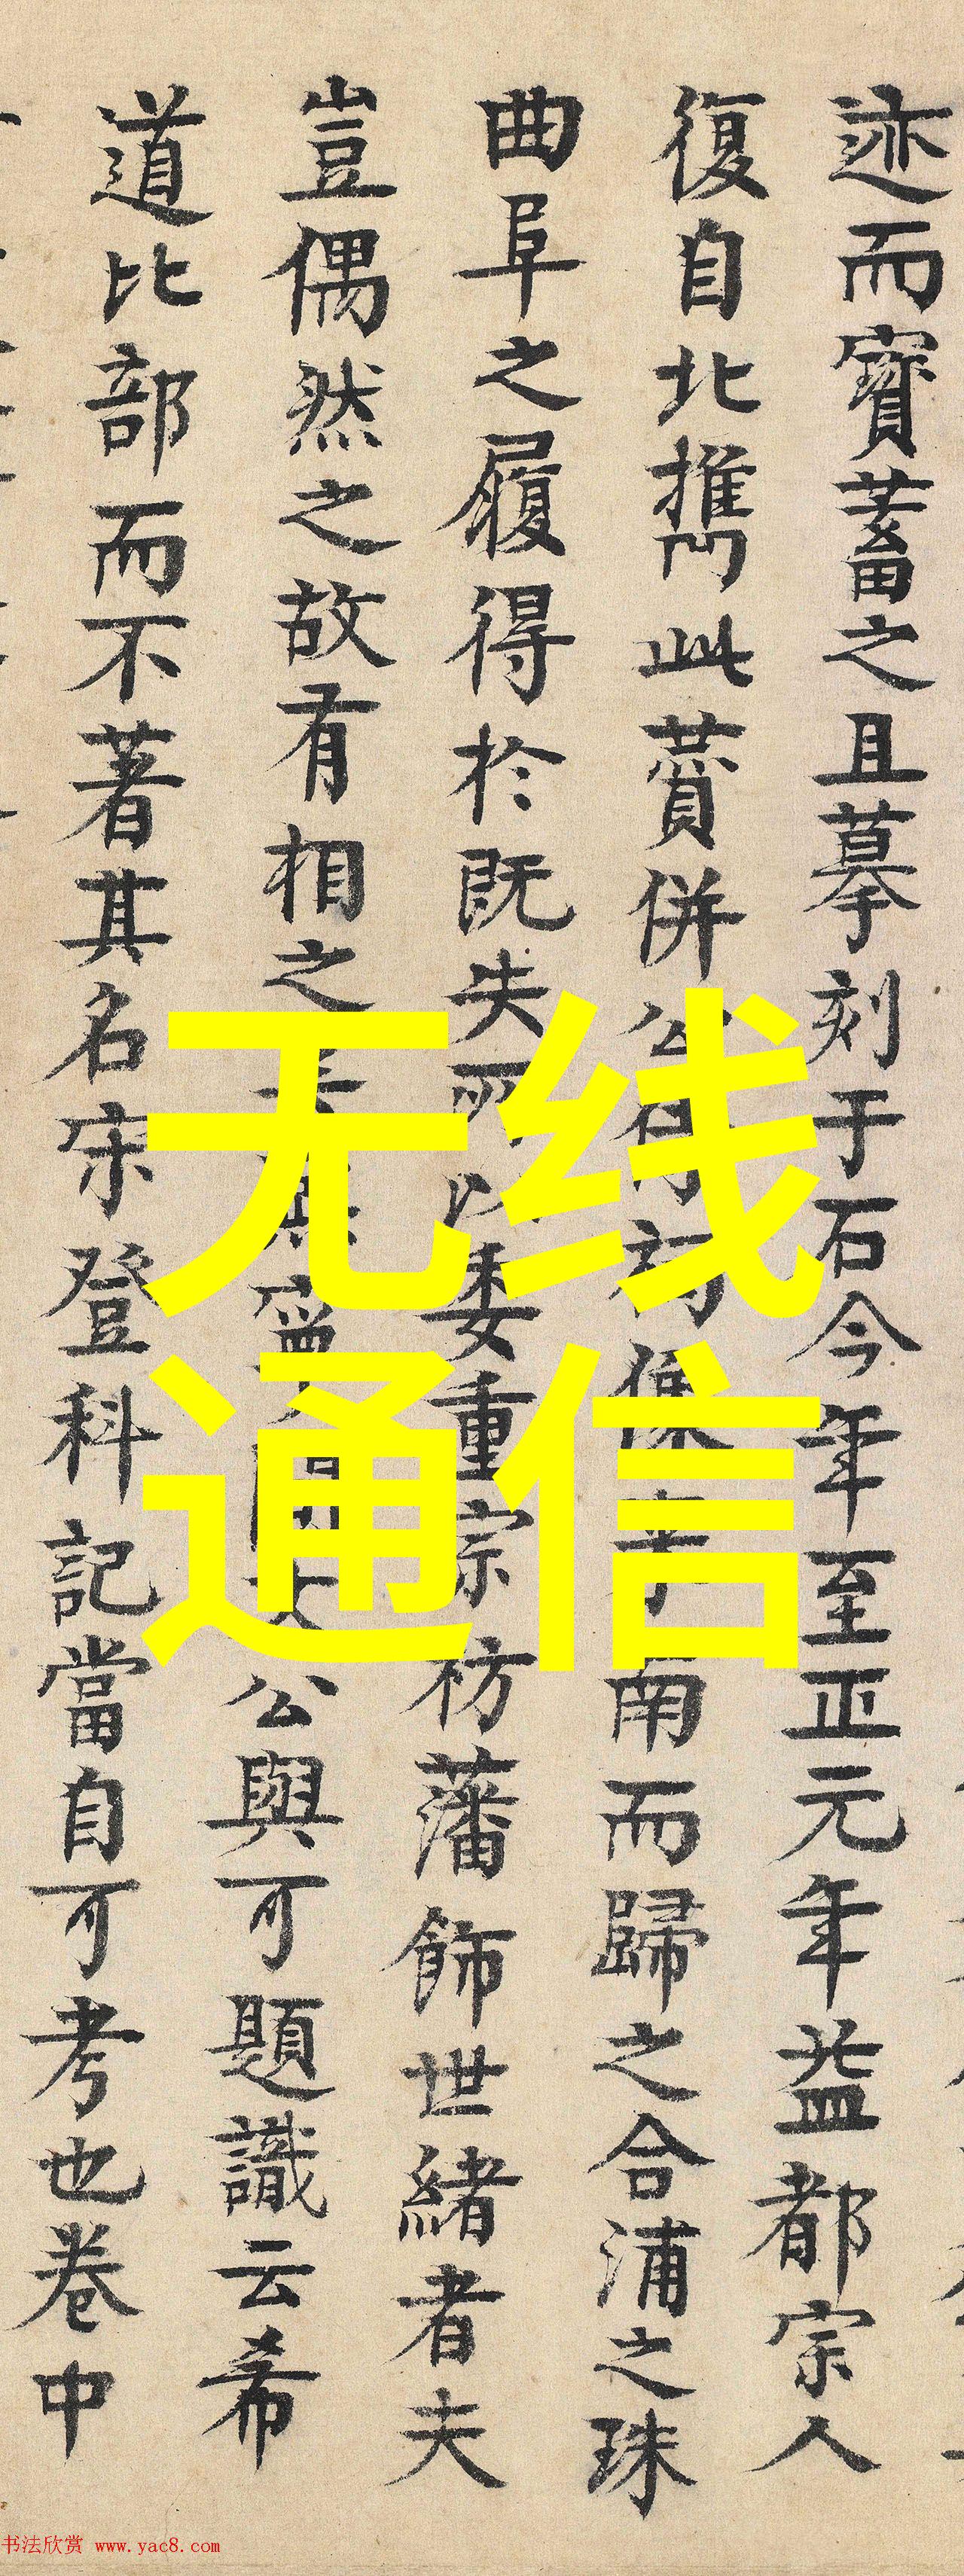 迹而寳蓄之且摹刻于石今年至正元年益都宗人
復自北攜此賛併公像南而歸之合浦之珠
曲阜之履得於既失以委重宗祊藩飾世緒者夫
豈偶然之故有相之公與可題識云希
道比部而不著其名宋登科記當自可考也卷中
无线
通信
书法欣赏 www.yac8.com